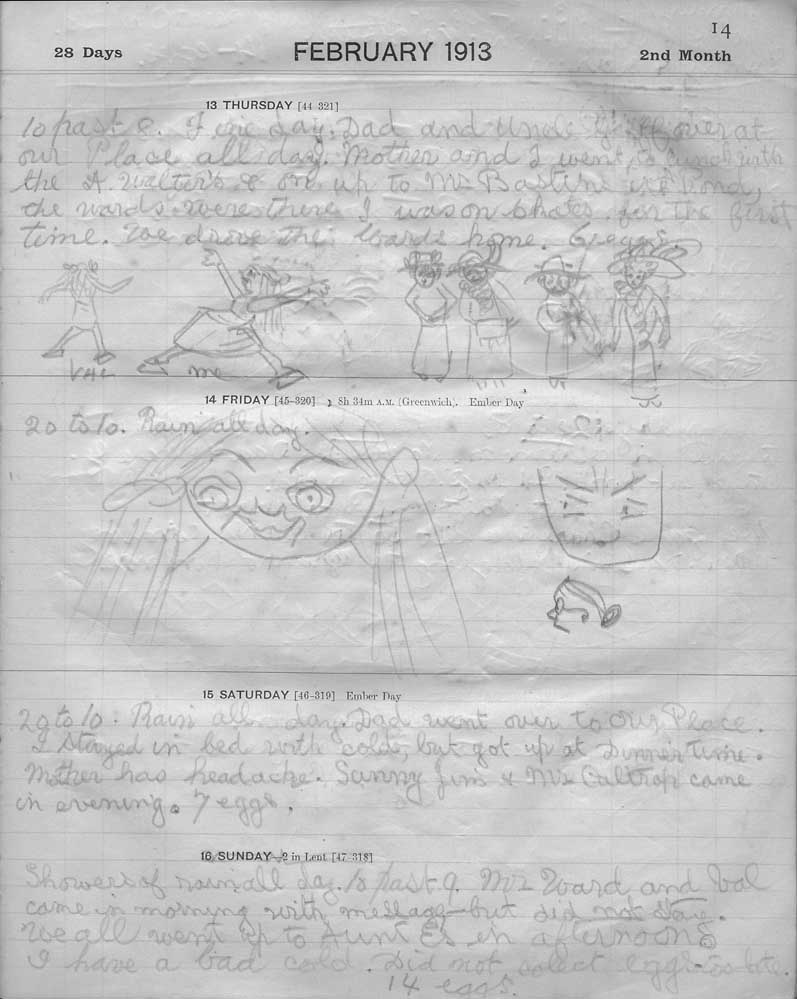 14
28 Days FEBRUARY 1913 2nd Month
13 THURSDAY [44-321]
10 past 8. Fine day. Dad and Uncle over at
our Place all day. Mother and I went to lunch with
the A. Walter's & on up to Mr Bastin ice Pond,
the wards were there I was on skates for the first
time. We drove the Wards home. 6 eggs.
Val me
14 FRIDAY [45-320] 8h 34m A.M. (Greenwich). Ember Day
20 to 10. Rain all day.
15 SATURDAY [46-319] Ember Day
20 to 10. Rain all day. Dad went over to Our Place.
I stayed in bed with cold, but got up at Dinner time.
Mother has headache. Sunny Jim & Mr Caltrop came
in evening. 7 eggs.
16 SUNDAY-2 in Lent [47-318]
Showers of rain all day. 10 past 9. Mr Ward and Val
came in morning with message-but did not stay.
We all went up to Aunt E's in afternoon
I have a bad cold. Did not collect eggs-so late.
14 eggs.